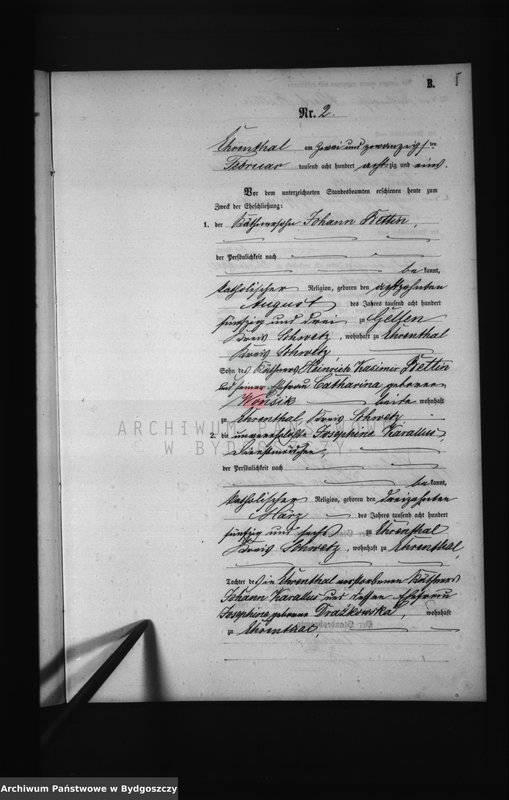 B.
Nr. 2.
Ehrenthal am zwei und zwanzigsten
Februar tausend acht hundert achtzig und eins.
Vor dem unterzeichneten Standesbeamten erschienen heute zum
Zweck der Eheschließung:
1. der Käthnersohn Johann Bettin,
der Persönlichkeit nach
be kannt,
katholischer Religion, geboren den achtzehnten
August des Jahres tausend acht hundert
fünfzig und drei zu
Kreis Schwetz, wohnhaft zu Ehrenthal
Kreis Schwetz
Sohn des Käthners Heinrich Kasimir Bettin
und seiner Ehefrau Catharina geborene
beide wohnhaft
zu Ehrenthal Kreis Schwetz
2. die unverehelichte Josephine Karallus
Dienstmädchen,
der Persönlichkeit nach
be kannt,
katholischer Religion, geboren den dreizehnten
März des Jahres tausend acht hundert
fünfzig und sechs zu Ehrenthal
Kreis Schwetz, wohnhaft zu Ehrenthal,
Tochter des in Ehrenthal verstorbenen Käthners
Johann Karallus und dessen Ehefrau
Josephine geborene Drazkowska, wohnhaft
zu Ehrenthal,
ARCHIWUM PAŃSTWOWE
W BYDGOSZCZY
Archiwum Państwowe w Bydgoszczy